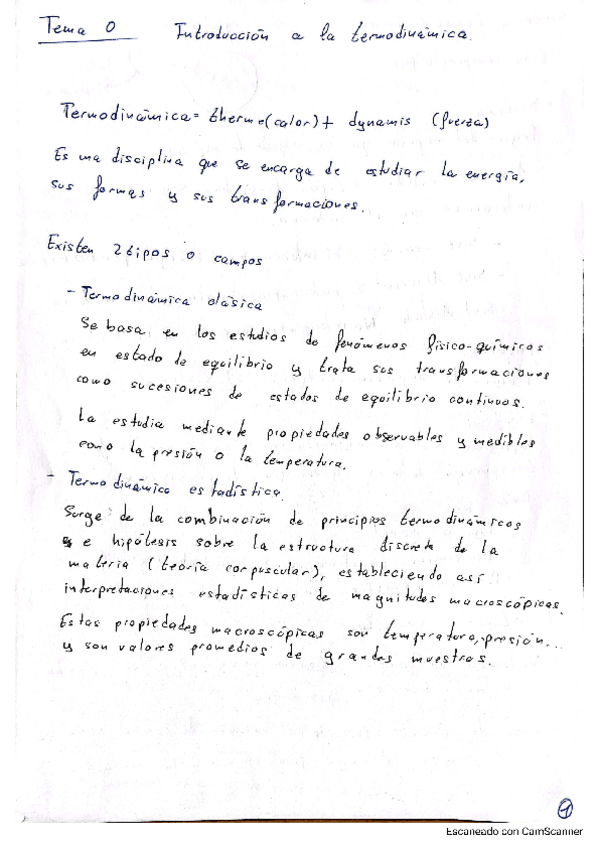 Tema 0 Introducción a la termodinámica.
Termodinámica = therme (calor) + dynamis (fuerza)
Es una disciplina que se encarga de estudiar la energía,
sus formas y sus transformaciones.
Existen 2 tipos o campos
- Termodinámica clásica
Se basa en los estudios de fenómenos físico-químicos
en estado de equilibrio y trata sus transformaciones
como sucesiones de estados de equilibrio continuos.
La estudia mediante propiedades observables y medibles
como la presión o la temperatura.
- Termodinámica estadística.
Surge de la combinación de principios termodinámicos
e hipótesis sobre la estructura discreta de la
materia (teoría corpuscular), estableciendo así
interpretaciones estadísticas de magnitudes macroscópicas.
Estas propiedades macroscópicas son temperatura, presión...
y son valores promedios de grandes muestras.
1
Escaneado con CamScanner